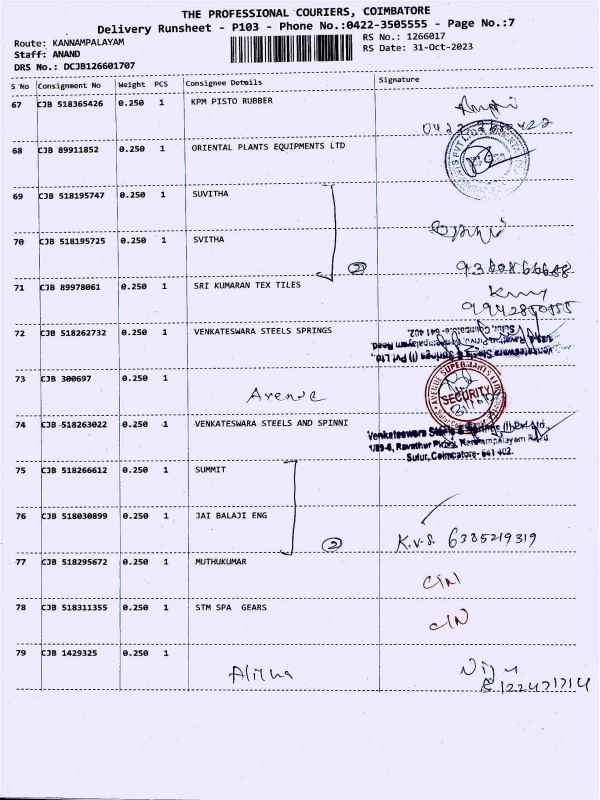 THE PROFESSIONAL COURIERS, COIMBATORE
Delivery Runsheet - P103 - Phone No.:0422-3505555 - Page No.:7
Route: KANNAMPALAYAM
RS No.: 1266017
Staff: ANAND
RS Date: 31-Oct-2023
DRS No.: DCJB126601707
S No Consignment No Weight PCS Consignee Details Signature
67 CJB 518365426 0.250 1 KPM PISTO RUBBER
68 CJB 89911852 0.250 1 ORIENTAL PLANTS EQUIPMENTS LTD
69 CJB 518195747 0.250 1 SUVITHA
70 CJB 518195725 0.250 1 SVITHA
2
71 CJB 89978061 0.250 1 SRI KUMARAN TEX TILES
72 CJB 518262732 0.250 1 VENKATESWARA STEELS SPRINGS
Venkateswara Steels & Springs (I) Pvt Ltd.,
Sulur, Coimbatore- 641 402.
73 CJB 300697 1
Avenue
AVENUE SUPERMARTS LTD
SECURITY
74 CJB 518263022 0.250 1 VENKATESWARA STEELS AND SPINNI
Venkateswara Steels & Springs (I) Pvt Ltd.
1/89-6, Ravathur Pirivu, Kannampalayam Road
Sulur, Coimbatore- 641 402.
75 CJB 518266612 0.250 1 SUMMIT
76 CJB 518030899 0.250 1 JAI BALAJI ENG
2
K.V.S. 6385219319
77 CJB 518295672 0.250 1 MUTHUKUMAR
C/N
78 CJB 518311355 0.250 1 STM SPA GEARS
C/N
79 CJB 1429325 0.250 1